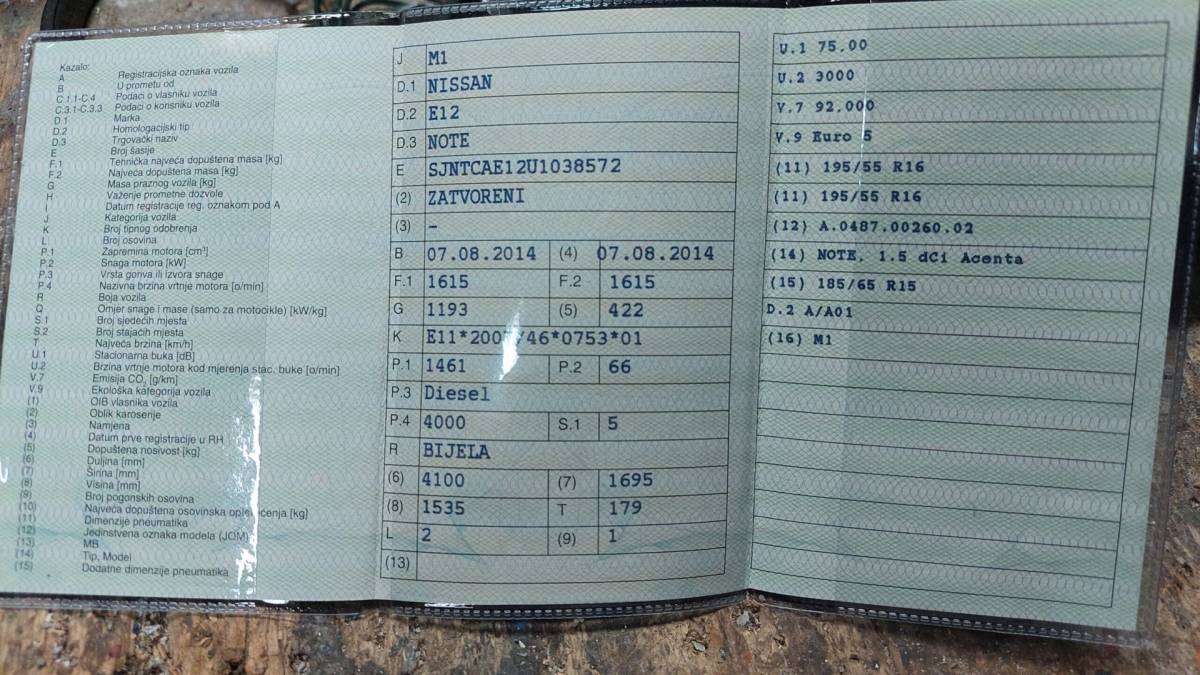 Kazalo:
A Registracijska oznaka vozila
B U prometu od
C.1.1-C.4 Podaci o vlasniku vozila
C.3.1-C.3.3 Podaci o korisniku vozila
D.1 Marka
D.2 Homologacijski tip
D.3 Trgovački naziv
E Broj šasije
F.1 Tehnička najveća dopuštena masa [kg]
F.2 Najveća dopuštena masa [kg]
G Masa praznog vozila [kg]
H Važenje prometne dozvole
I Datum registracije reg. oznakom pod A
J Kategorija vozila
K Broj tipnog odobrenja
L Broj osovina
P.1 Zapremina motora [cm³]
P.2 Snaga motora [kW]
P.3 Vrsta goriva ili izvora snage
P.4 Nazivna brzina vrtnje motora [o/min]
R Boja vozila
Q Omjer snage i mase (samo za motocikle) [kW/kg]
S.1 Broj sjedećih mjesta
S.2 Broj stajaćih mjesta
T Najveća brzina [km/h]
U.1 Stacionarna buka [dB]
U.2 Brzina vrtnje motora kod mjerenja stac. buke [o/min]
V.7 Emisija CO₂ [g/km]
V.9 Ekološka kategorija vozila
(1) OIB vlasnika vozila
(2) Oblik karoserije
(3) Namjena
(4) Datum prve registracije u RH
(5) Dopuštena nosivost [kg]
(6) Duljina [mm]
(7) Širina [mm]
(8) Visina [mm]
(9) Broj pogonskih osovina
(10) Najveća dopuštena osovinska [kg]
(11) Dimenzije pneumatika
(12) Jedinstvena oznaka modela (JOM)
(13) MB
(14) Tip, Model
(15) Dodatne dimenzije pneumatika
J M1
D.1 NISSAN
D.2 E12
D.3 NOTE
E SJNTCAE12U1038572
(2) ZATVORENI
(3) -
B 07.08.2014 (4) 07.08.2014
F.1 1615 F.2 1615
G 1193 (5) 422
K E11*2007/46*0753*01
P.1 1461 P.2 66
P.3 Diesel
P.4 4000 S.1 5
R BIJELA
(6) 4100 (7) 1695
(8) 1535 T 179
L 2 (9) 1
(13)
U.1 75.00
U.2 3000
V.7 92.000
V.9 Euro 5
(11) 195/55 R16
(11) 195/55 R16
(12) A.0487.00260.02
(14) NOTE, 1.5 dCi Acenta
(15) 185/65 R15
D.2 A/A01
(16) M1